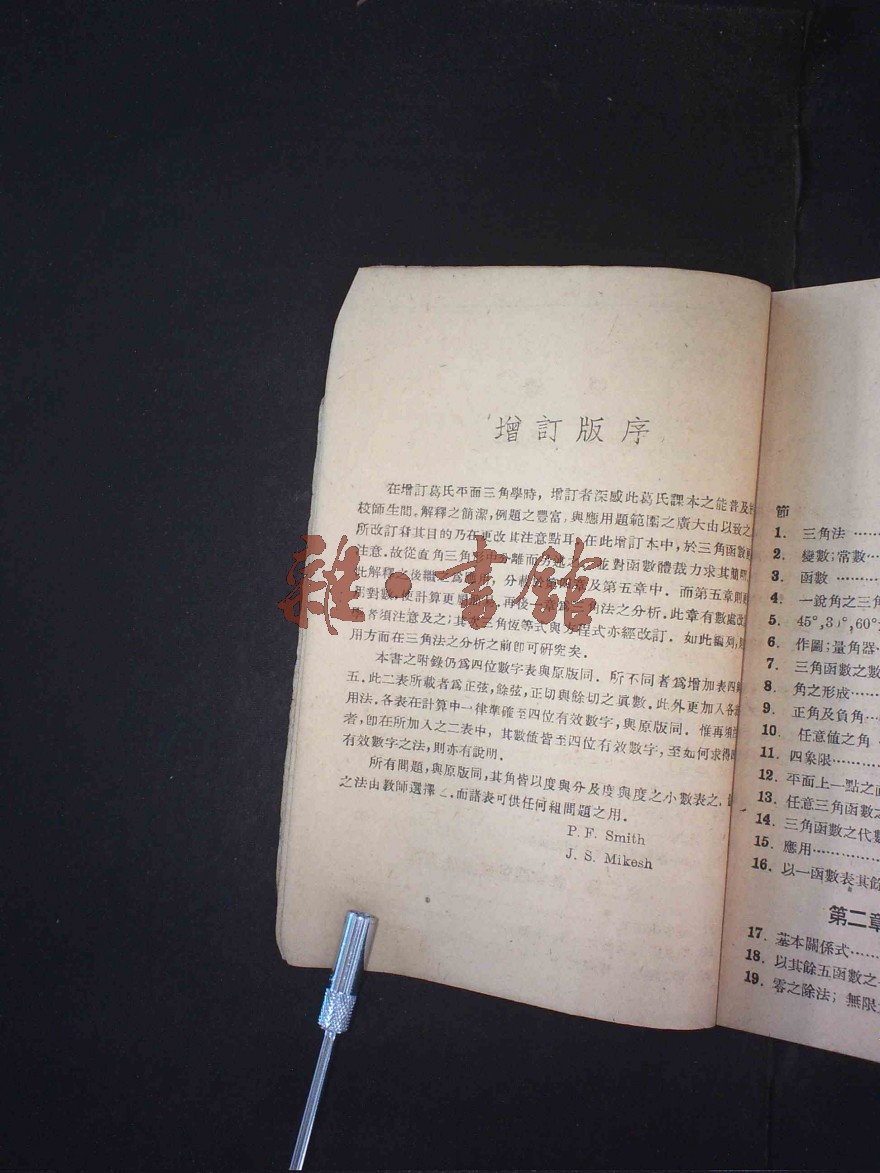 增訂版序
在增訂葛氏平面三角學時，增訂者深感此葛氏課本之能普及於
校師生間。解釋之簡潔，例題之豐富，與應用題範圍之廣大由以致之
所改訂者其目的乃在更改其注意點耳。在此增訂本中，於三角函數
注意．故從直角三角形中分離而另述之，並對函數體裁力求其簡明
此解釋之後繼之爲應用，分載於第四章及第五章中．而第五章則
用對數，使計算更屬簡捷．再後一章爲三角法之分析．此章有數處改
學者須注意及之；其於三角恆等式與方程式亦經改訂．如此編列，
用方面在三角法之分析之前卽可研究矣．
本書之附錄仍爲四位數字表與原版同．所不同者爲增加表四與
五．此二表所載者爲正弦，餘弦，正切與餘切之眞數．此外更加入各表
用法．各表在計算中一律準確至四位有效數字，與原版同．惟再須
者，卽在所加入之二表中，其數値皆至四位有效數字，至如何求得
有效數字之法，則亦有說明．
所有問題，與原版同，其角皆以度與分及度與度之小數表之，
之法由敎師選擇之．而諸表可供任何組問題之用．
P. F. Smith
J. S. Mikesh
雜·書館
節
1. 三角法
2. 變數；常數
3. 函數
4. 一銳角之三角
5. 45°,30°,60°
6. 作圖；量角器
7. 三角函數之數
8. 角之形成
9. 正角及負角
10. 任意值之角
11. 四象限
12. 平面上一點之
13. 任意三角函數之
14. 三角函數之代數
15. 應用
16. 以一函數表其餘
第二章
17. 基本關係式
18. 以其餘五函數之
19. 零之除法；無限